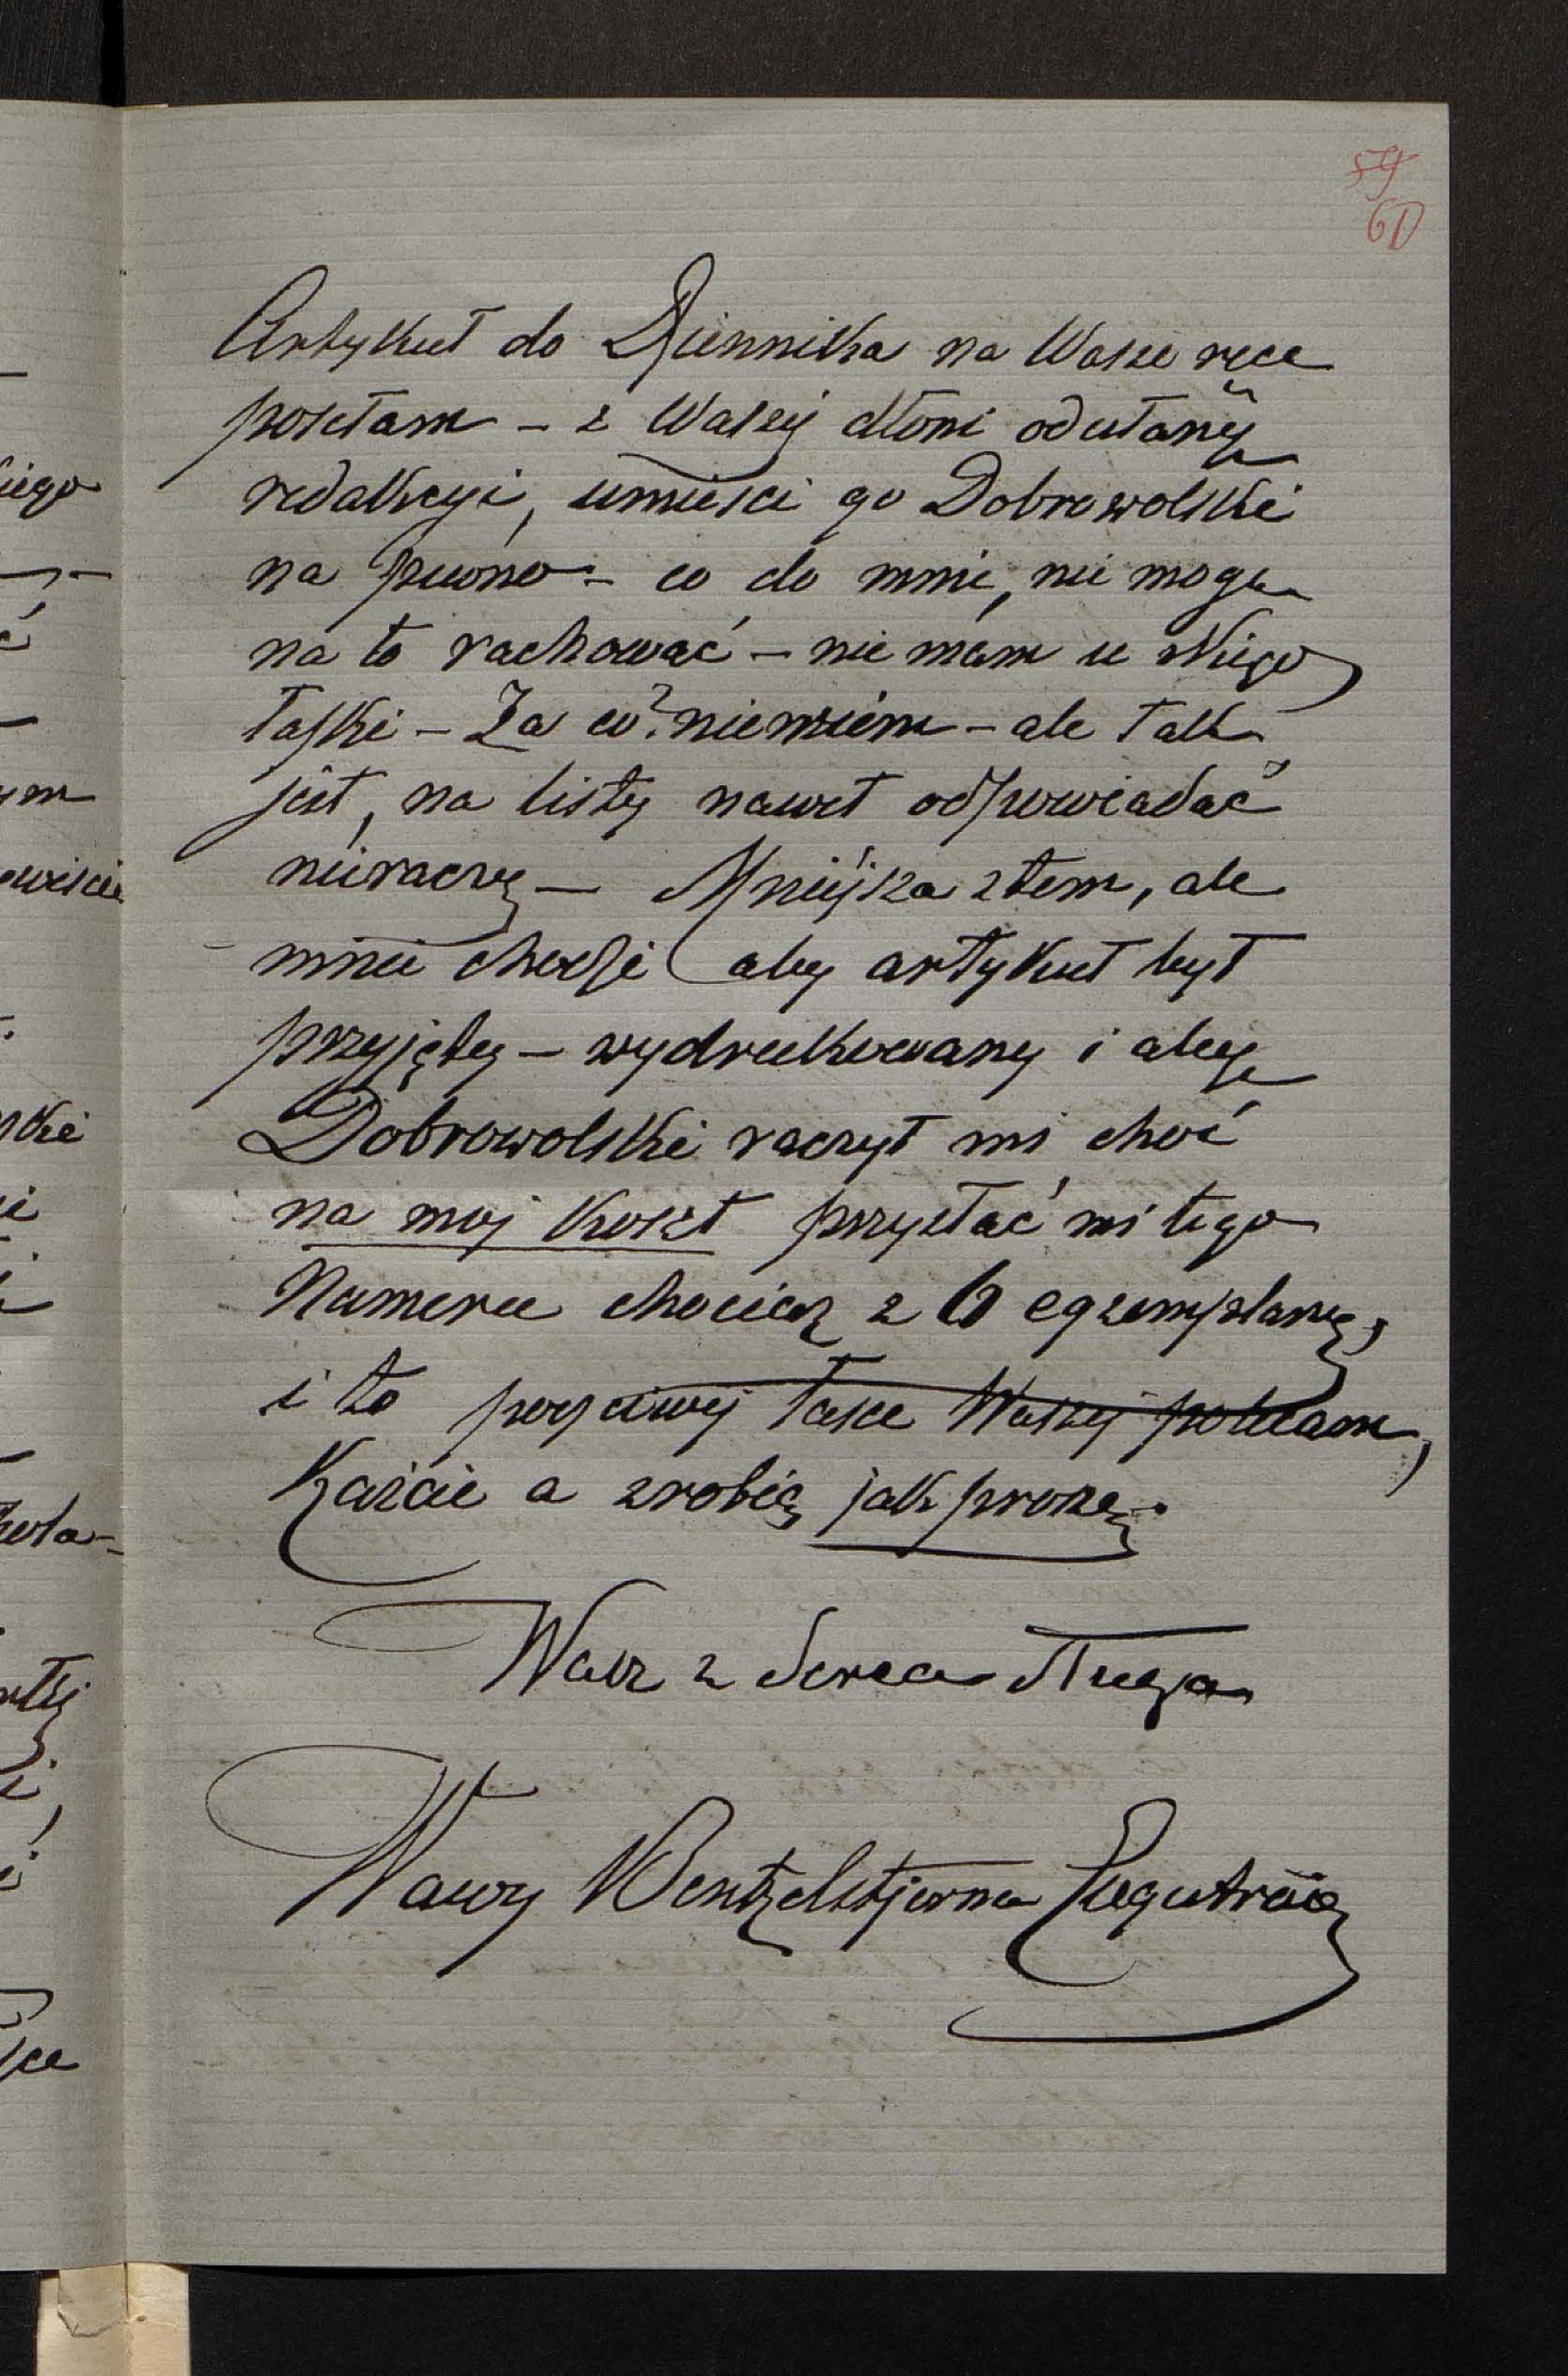 59
60
Artykuł do Dziennika na Wasze ręce
posełam – z Waszej dłoni odesłany
redakcyi, umieści go Dobrowolski
na pewno – co do mnie, nie mogę
na to rachować – nie mam u Niego
łaski – Za co? niewiem – ale tak
jest, na listy nawet odpowiadać
nieraczy – Mniejsza ztem, ale
mnie chodzi aby artykuł był
przyjęty – wydrukowany i aby
Dobrowolski raczył mi choć
na mój koszt przysłać mi tego
Numeru chociaż z 6 egzemplarzy,
i to poczciwej łasce Waszej polecam,
Każcie a zrobią jak proszę.
Wasz z Serca Sługa
Wawy Wentzelstjerna